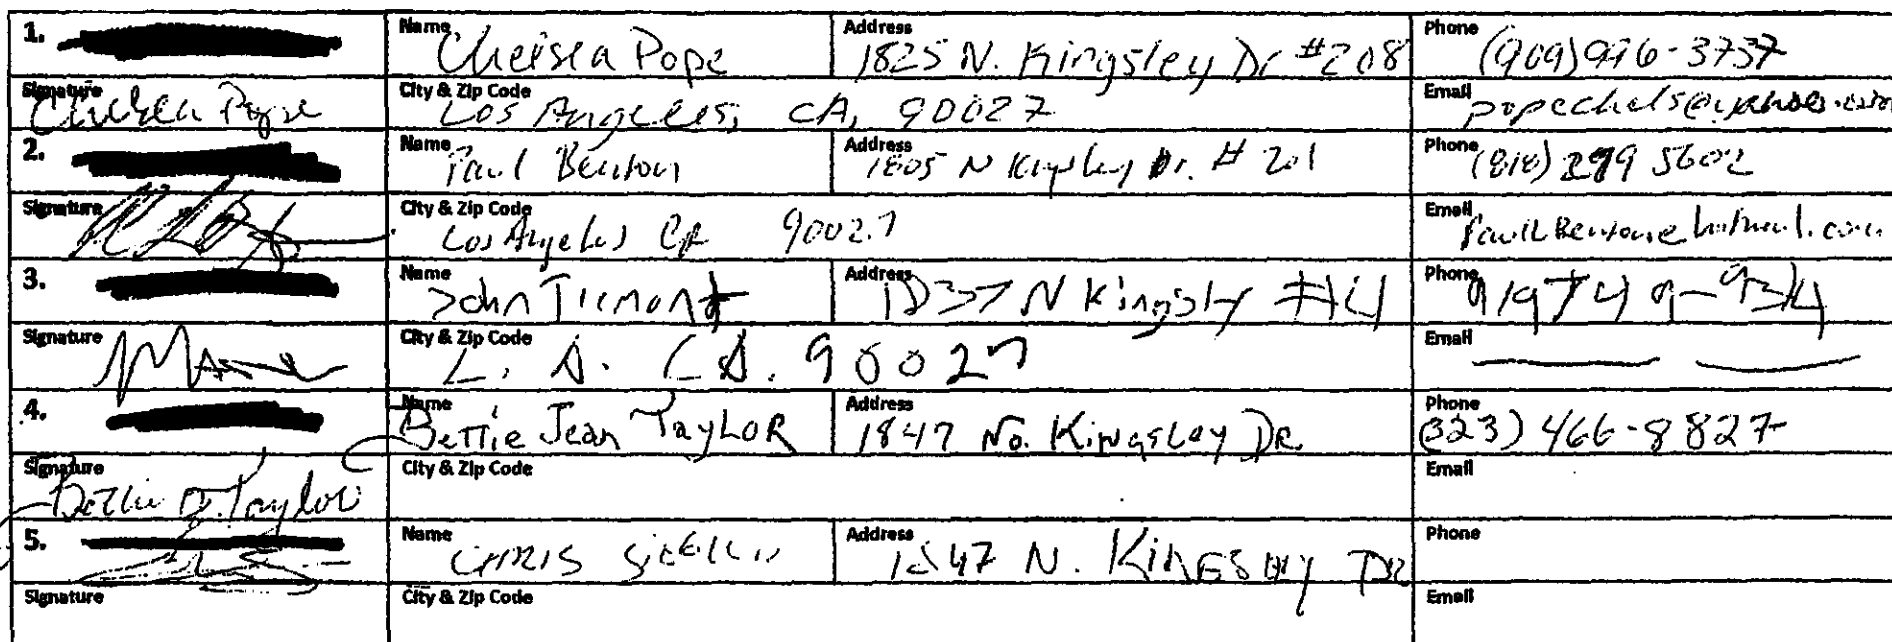 1. Name Chelsea Pope Address 1825 N. Kingsley Dr #208 Phone (909)996-3737
Signature Chelsea Pope City & Zip Code Los Angeles, CA, 90027 Email popechels@yahoo.com
2. Name Paul Benton Address 1805 N Kingsley Dr. # 201 Phone (818) 299 5602
Signature City & Zip Code Los Angeles CA 90027 Email
3. Name John Address 1837 N Kingsly #14 Phone
Signature City & Zip Code L. A. CA. 90027 Email
4. Name Bettie Jean TayLOR Address 1847 No. Kingsley DR. Phone (323) 466-8827
Signature Bettie J. Taylor City & Zip Code Email
5. Name CHRIS Address 1847 N. Phone
Signature City & Zip Code Email